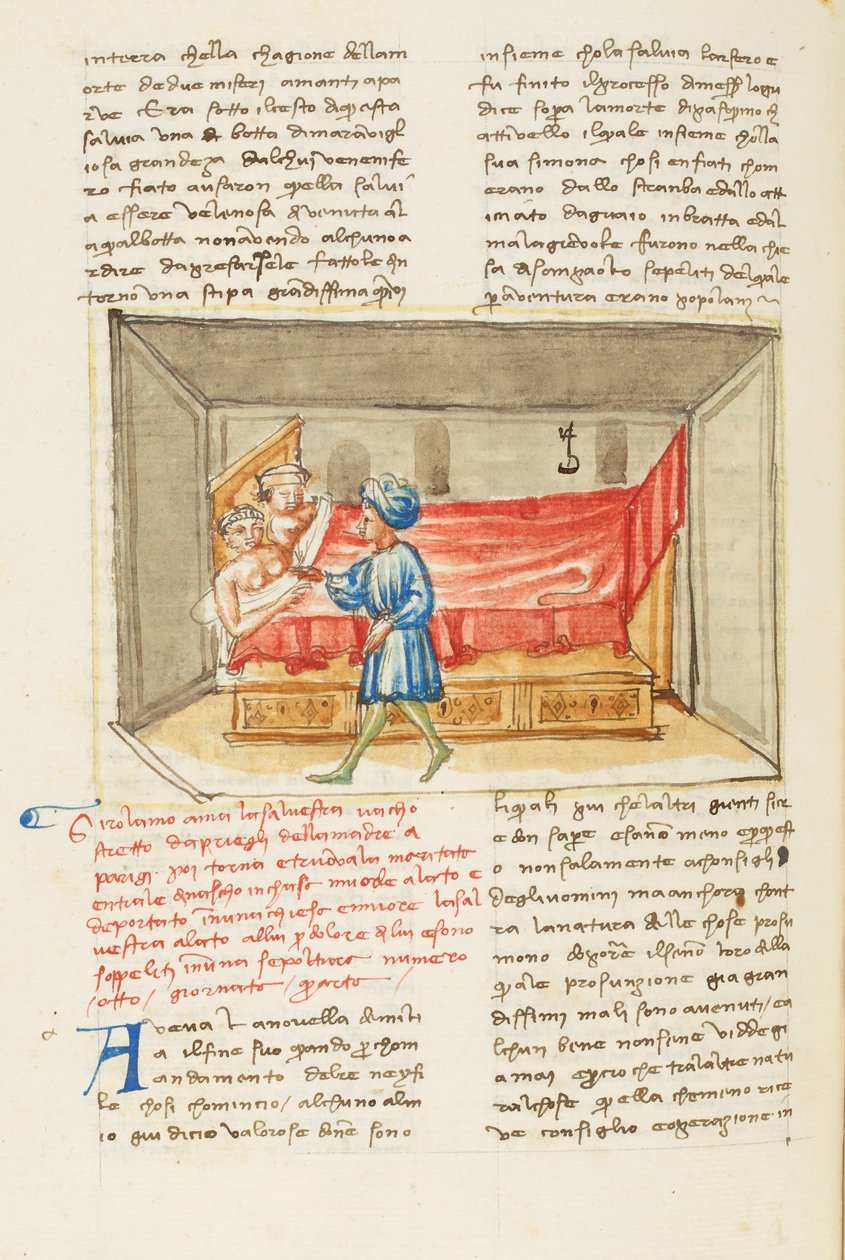 interra chella chagione dellam
orte dedue miseri amanti apa
rve Era sotto ilcesto diquesta
salvia una botta dimaravigl
iosa grandeza dalchui venenife
ro fiato avisaron quella salvi
a essere velenosa divenuta al
aqual botta nonavendo alchuno a
rdire dapresarsele fattole in
torno una stipa grandissima quivi
insieme chola salvia larsero e
fu finito ilprocesso dimesser logu
dice sopra lamorte di
attivello ilquale insieme cholla
sua simona chosi enfiati chom
erano dallo stranba edallo att
iciato daguccio inbratta edal
malagievole furono nella chie
sa disanpaolo sepeliti delquale
peraventura erano popolani
Girolamo ama lasalvestra va cho
stretto dapriegi dellamadre a
parigi poi torna etruovala maritata
entrale dinascho inchasa muorle alato e
deportato inuna chiesa emuore lasal
vestra alato allui per dolore di lui esono
soppeliti inuna sepoltura numero
otto giornata quarta
Aveva la novella demili
a ilfine suo quando per chom
andamento delre neyfi
le chosi chomincio / alchuno alm
io giudicio valorose donne sono
liquali piu chelaltri gienti sier
e don sapere esanno meno eperquest
o nonsalamente achonsigli
degliuomini maanchora chont
ra lanatura delle chose prosu
mono doporre ilsenno loro della
quale prosunzione gia gran
dissimi mali sono avenuti / ea
lchun bene nonsene viddegi
amai epercio che tralaltre natu
ralchose quella chemeno rice
ve consiglio eoperazione in